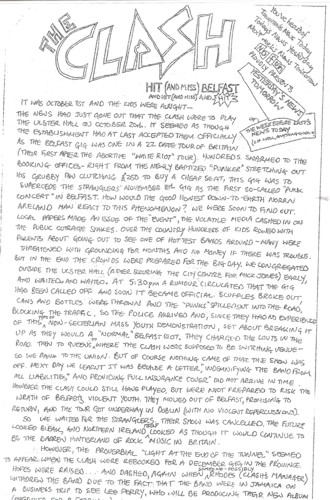 THE
CLASH
HIT (AND MISS) BELFAST
AND HIT (AND MISS) AND
YESTERDAY'S NEWS
TOMORROW
IT WAS OCTOBER 1ST AND THE KIDS WERE ALRIGHT —
THE NEWS HAD JUST GONE OUT THAT THE CLASH WERE TO PLAY
THE ULSTER HALL ON OCTOBER 20TH. IT SEEMED AS THOUGH
THE ESTABLISHMENT HAD AT LAST ACCEPTED THEM OFFICIALLY
AS THE BELFAST GIG WAS ONE IN A 22 DATE TOUR OF BRITAIN
(THEIR FIRST AFTER THE ABORTIVE "WHITE RIOT" TOUR). HUNDREDS SWARMED TO THE
BOOKING OFFICES - RIGHT FROM THE NEWLY BAPTIZED "PUNKER" STRETCHING OUT
HIS GRUBBY PAW CLUTCHING £1.50 TO BUY A CHEAP SEAT. THIS GIG WAS TO
SUPERCEDE THE STRANGLERS' NOVEMBER GIG AS THE FIRST SO-CALLED "PUNK
CONCERT" IN BELFAST. HOW WOULD THE GOOD HONEST DOWN-TO-EARTH NORTH
IRELAND MAN REACT TO THIS PHENOMENON? WE WERE SOON TO FIND OUT.
LOCAL PAPERS MADE AN ISSUE OF THE "EVENT", THE VOLATILE MEDIA CASHED IN ON
THE PUBLIC OUTRAGE STAKES. OVER THE COUNTRY HUNDREDS OF KIDS ROWED WITH
PARENTS ABOUT GOING OUT TO SEE ONE OF HOTTEST BANDS AROUND - MANY WERE
THREATENED WITH GROUNDING FOR MONTHS AND NO MONEY IF THERE WAS TROUBLE.
BUT IN THE END THE CROWDS WERE PREPARED FOR THE BIG DAY, WE CONGREGATED
OUTSIDE THE ULSTER HALL (AFTER SCOURING THE CITY CENTRE FOR MICK JONES) EARLY,
AND WAITED AND WAITED. AT 5:30PM A RUMOUR CIRCULATED THAT THE GIG
HAD BEEN CALLED OFF AND SOON IT BECAME OFFICIAL. SCUFFLES BROKE OUT,
CANS AND BOTTLES WERE THROWN AND THE "PUNKS" SPILLED OUT INTO THE ROAD,
BLOCKING THE TRAFFIC, SO THE POLICE ARRIVED AND, SINCE THEY HAD AN EXPERIENCE
OF THIS, NON-SECTARIAN MASS YOUTH DEMONSTRATION, SET ABOUT BREAKING IT
UP AS THEY WOULD A "NORMAL" BELFAST RIOT, THEY CHARGED THE CROWD IN THE
ROAD. THEN TO QUEENS, WHERE THE CLASH WERE SUPPOSED TO BE SWITCHING VENUE -
SO WE RAN TO THE UNION. BUT OF COURSE NOTHING CAME OF THAT. THE SHOW WAS
OFF. NEXT DAY WE LEARNT IT WAS BECAUSE A LETTER, "INDEMNIFYING THE BAND FROM
ALL LIABILITIES" AND PROVIDING FULL INSURANCE COVER DID NOT ARRIVE IN TIME.
HOWEVER THE CLASH COULD STILL HAVE PLAYED, BUT WERE NOT PREPARED TO RISK THE
WRATH OF BELFAST'S VIOLENT YOUTH. THEY MOVED OUT OF BELFAST, PROMISING TO
RETURN, AND THE TOUR GOT UNDERWAY IN DUBLIN (WITH NO VIOLENT REPERCUSSIONS).
SO WE WAITED FOR THE STRANGLERS, THEIR SHOW WAS CANCELLED. THE FUTURE
LOOKED BLEAK, AND NORTHERN IRELAND LOOKED AS THOUGH IT WOULD CONTINUE TO
BE THE BARREN HINTERLAND OF ROCK MUSIC IN BRITAIN.
HOWEVER, THE PROVERBIAL "LIGHT AT THE END OF THE TUNNEL" SEEMED
TO APPEAR WHEN THE CLASH WERE REBOOKED FOR A DECEMBER GIG IN THE PROVINCE.
HOPES WERE RAISED... AND DASHED, AGAIN WHEN RHODES (CLASH MANAGER)
WITHDREW THE BAND DUE TO THE FACT THAT THE BAND WERE IN JAMAICA ON
A BUSINESS TRIP TO SEE LEE PERRY, WHO WILL BE PRODUCING THEIR NEW ALBUM